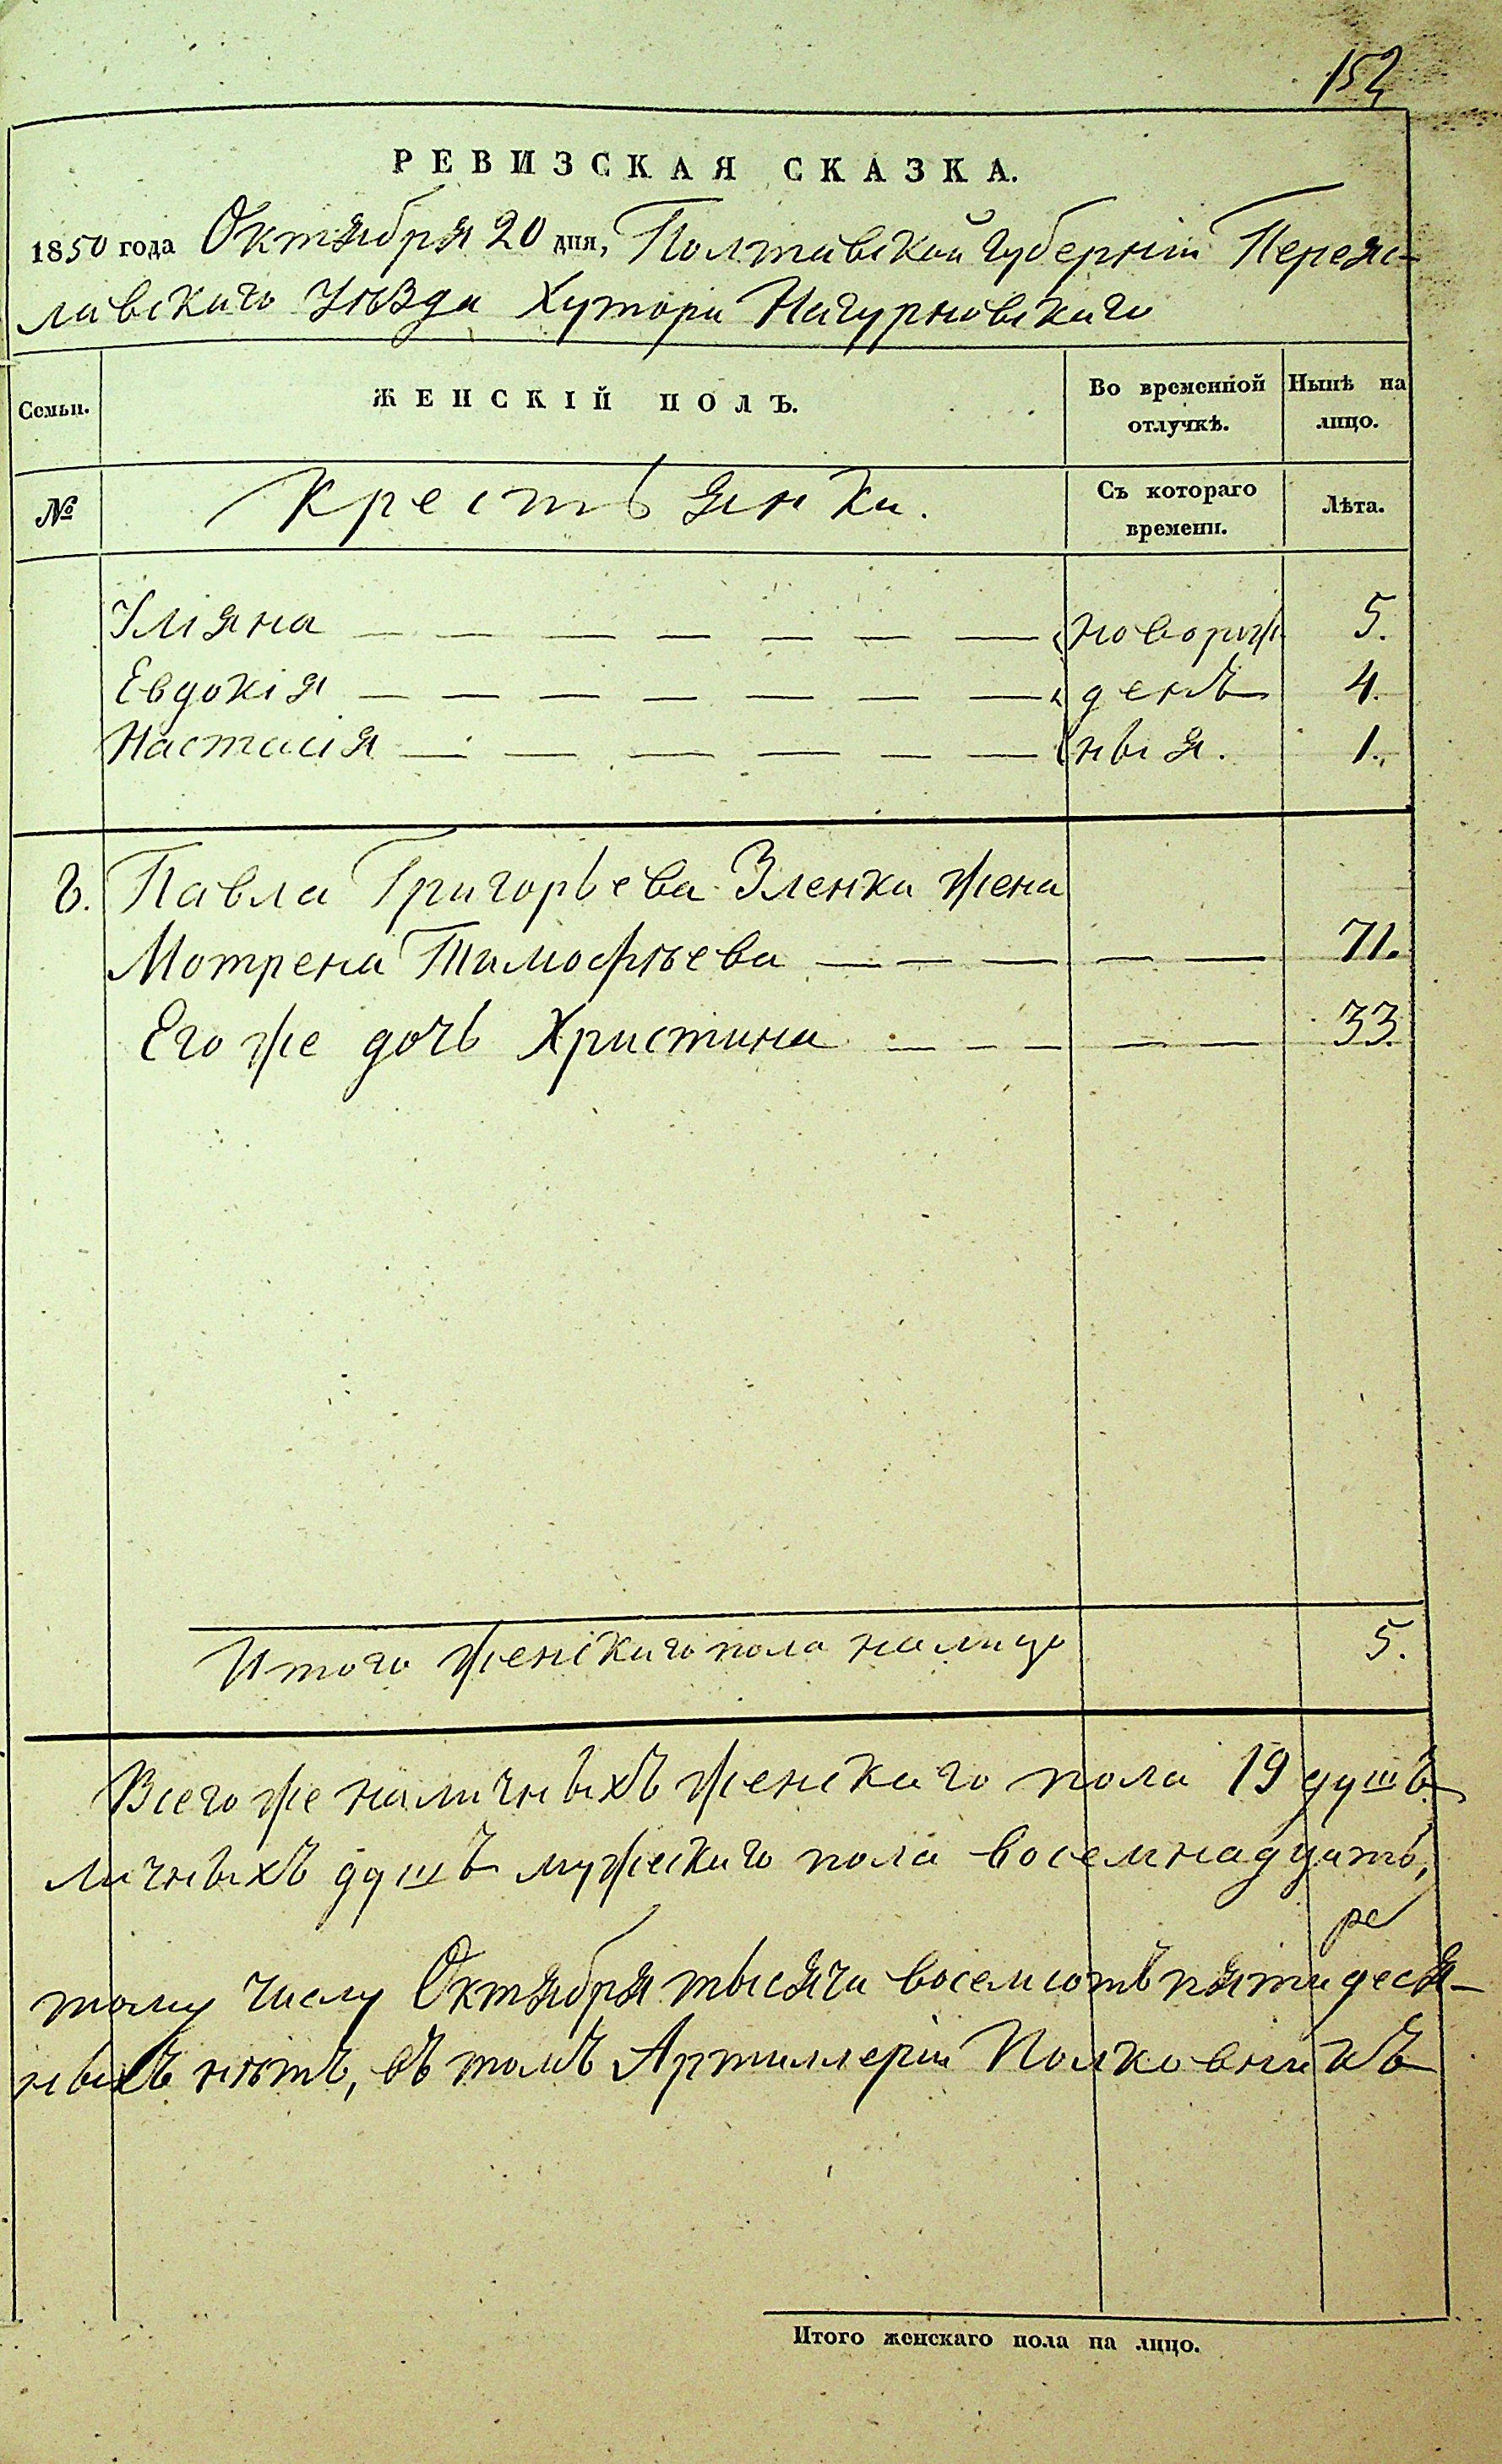 152
РЕВИЗСКАЯ СКАЗКА.
1850 года Октября 20 дня, Полтавской Губерніи Переяс-
лавскаго Уѣзда Хутора Нагурновскаго
Семьи. ЖЕНСКІЙ ПОЛЪ. Во временной отлучкѣ. Нынѣ на лицо.
№ Крестьянки. Съ котораго времени. Лѣта.
Уліяна новорож 5.
Евдокія денъ 4.
Настасія ныя. 1.
6. Павла Григорьева Зленка жена
Мотрена Тимофѣева 71.
Его же дочь Христина 33.
Итого женскаго пола на лицо 5.
Всего же наличныхъ женскаго пола 19 душъ
личныхъ душъ мужескаго пола восемнадцать,
ре
тому числу Октября тысяча восемсотъ пятидеся-
ныхъ нѣтъ, въ томъ Артиллеріи Полковникъ
Итого женскаго пола на лицо.